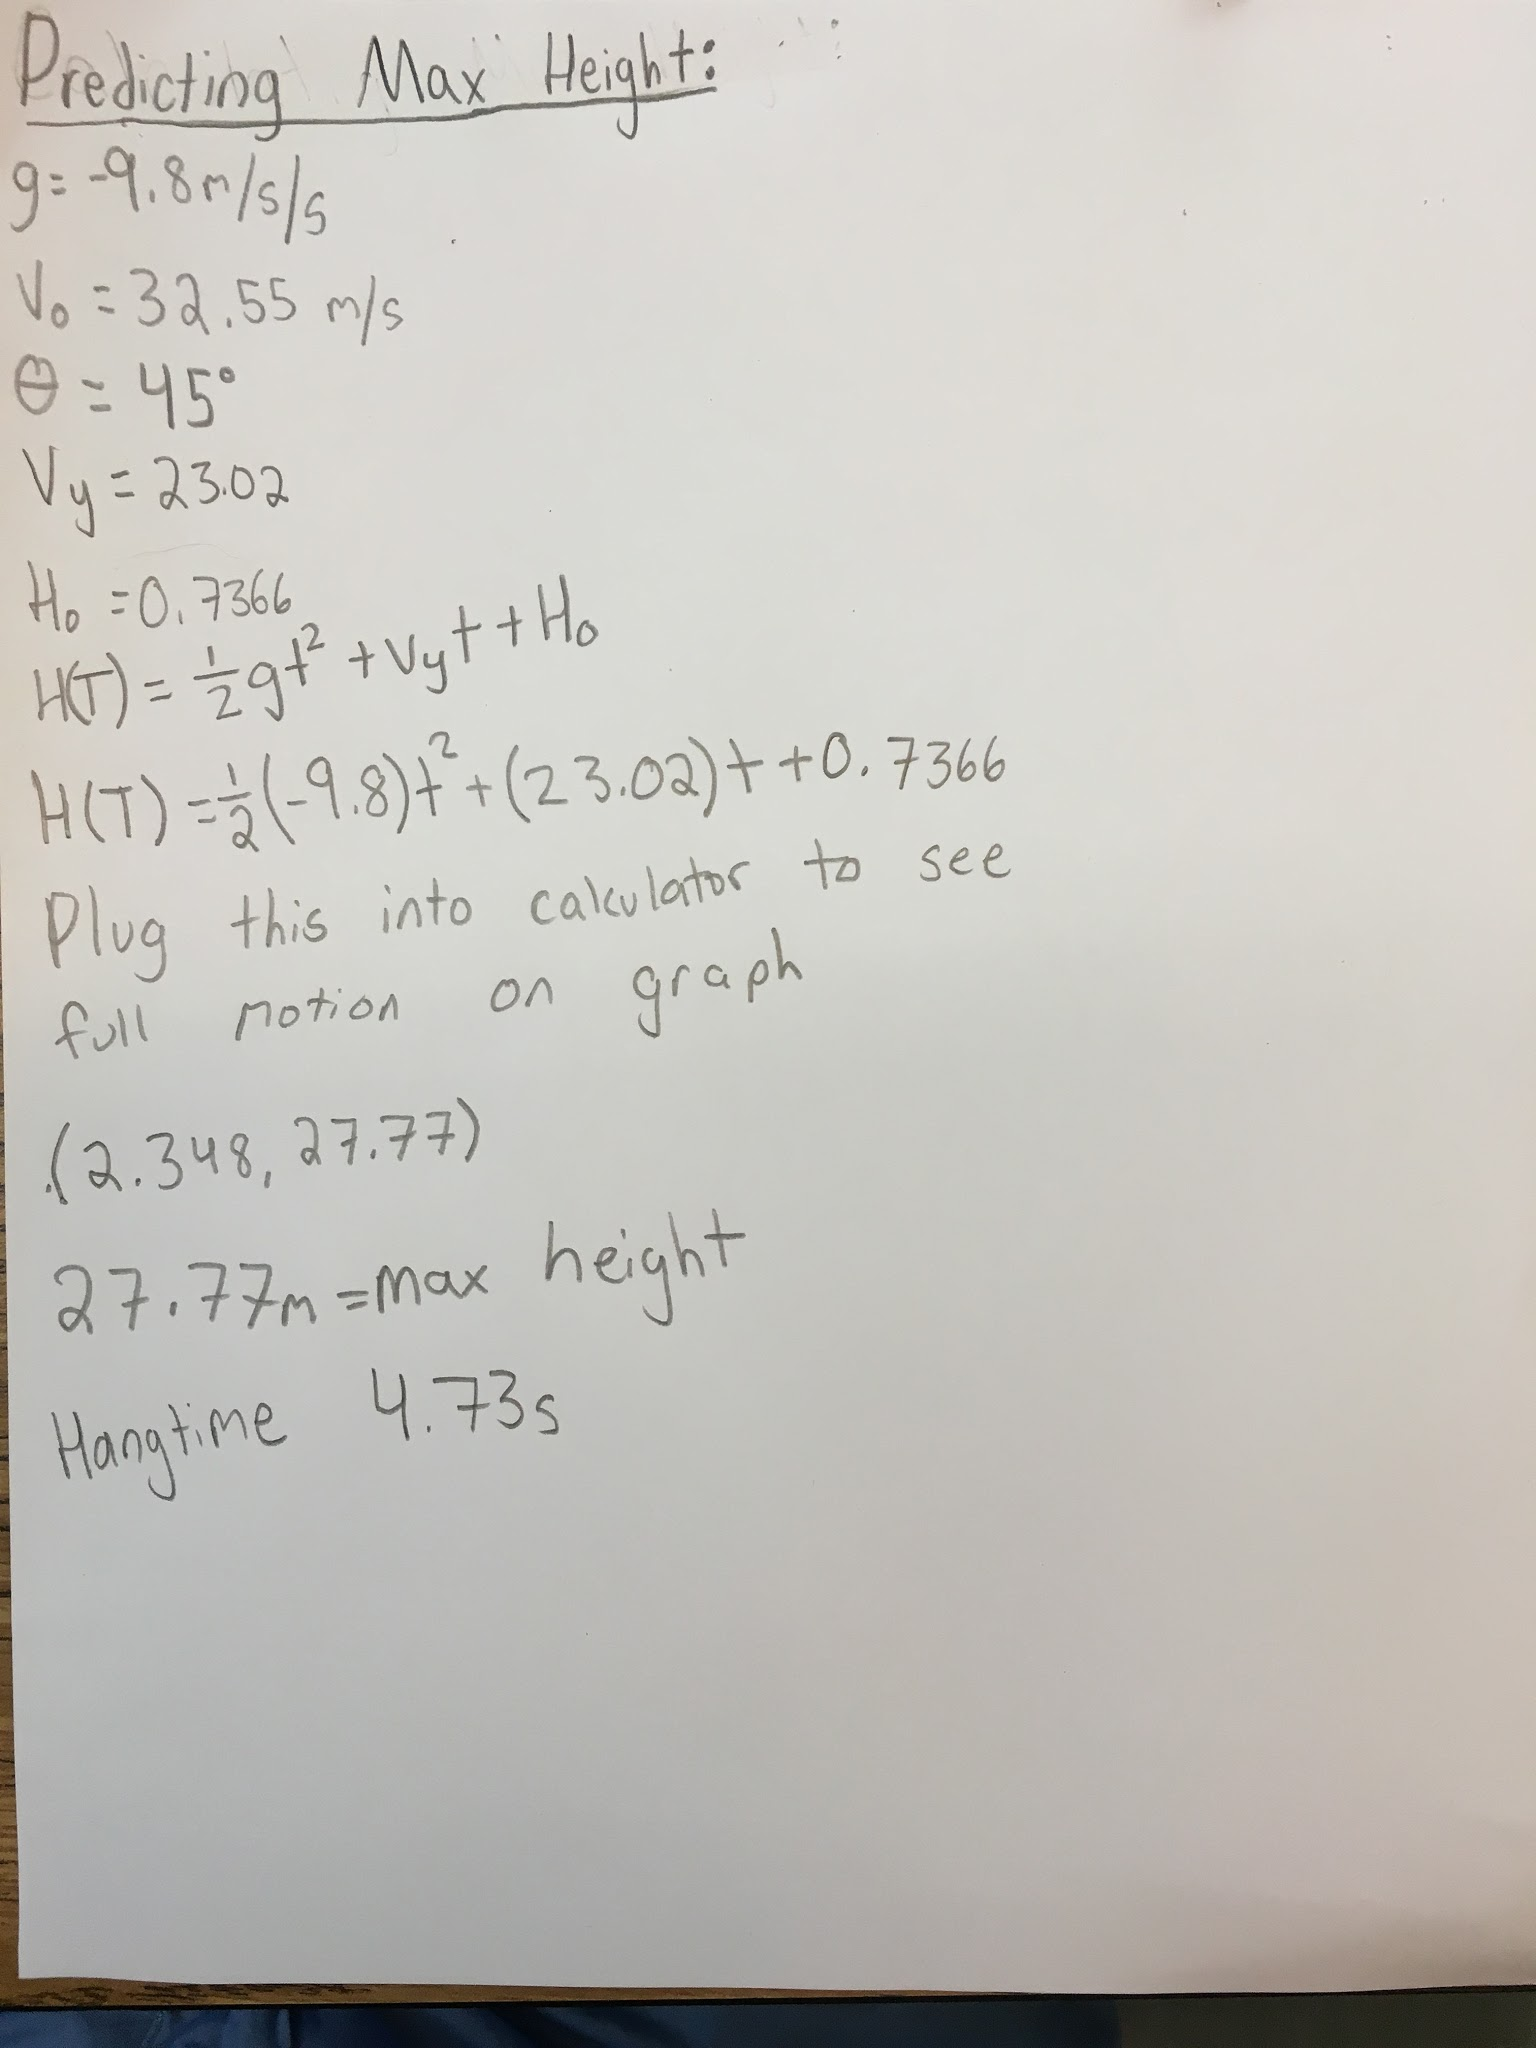 Predicting Max Height:
g = -9.8m/s/s
V₀ = 32.55 m/s
θ = 45°
Vy = 23.02
H₀ = 0.7366
H(T) = ½gt² + Vyt + H₀
H(T) = ½(-9.8)t² + (23.02)t + 0.7366
Plug this into calculator to see
full motion on graph
(2.348, 27.77)
27.77m = max height
Hangtime 4.73s